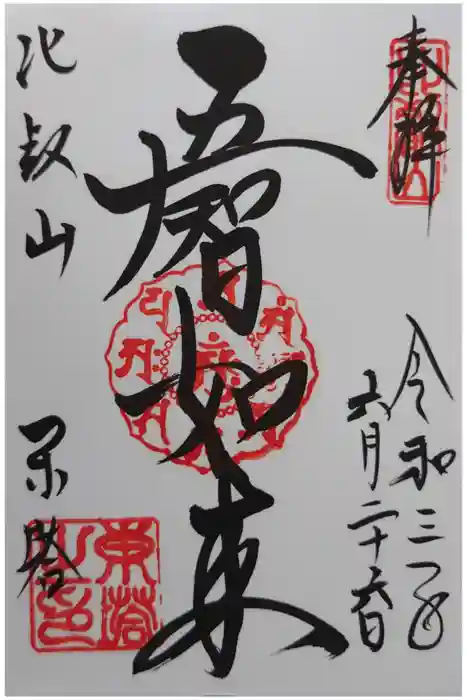 奉拝
令和三年
六月二十六日
五智如来
比叡山 東塔
東塔